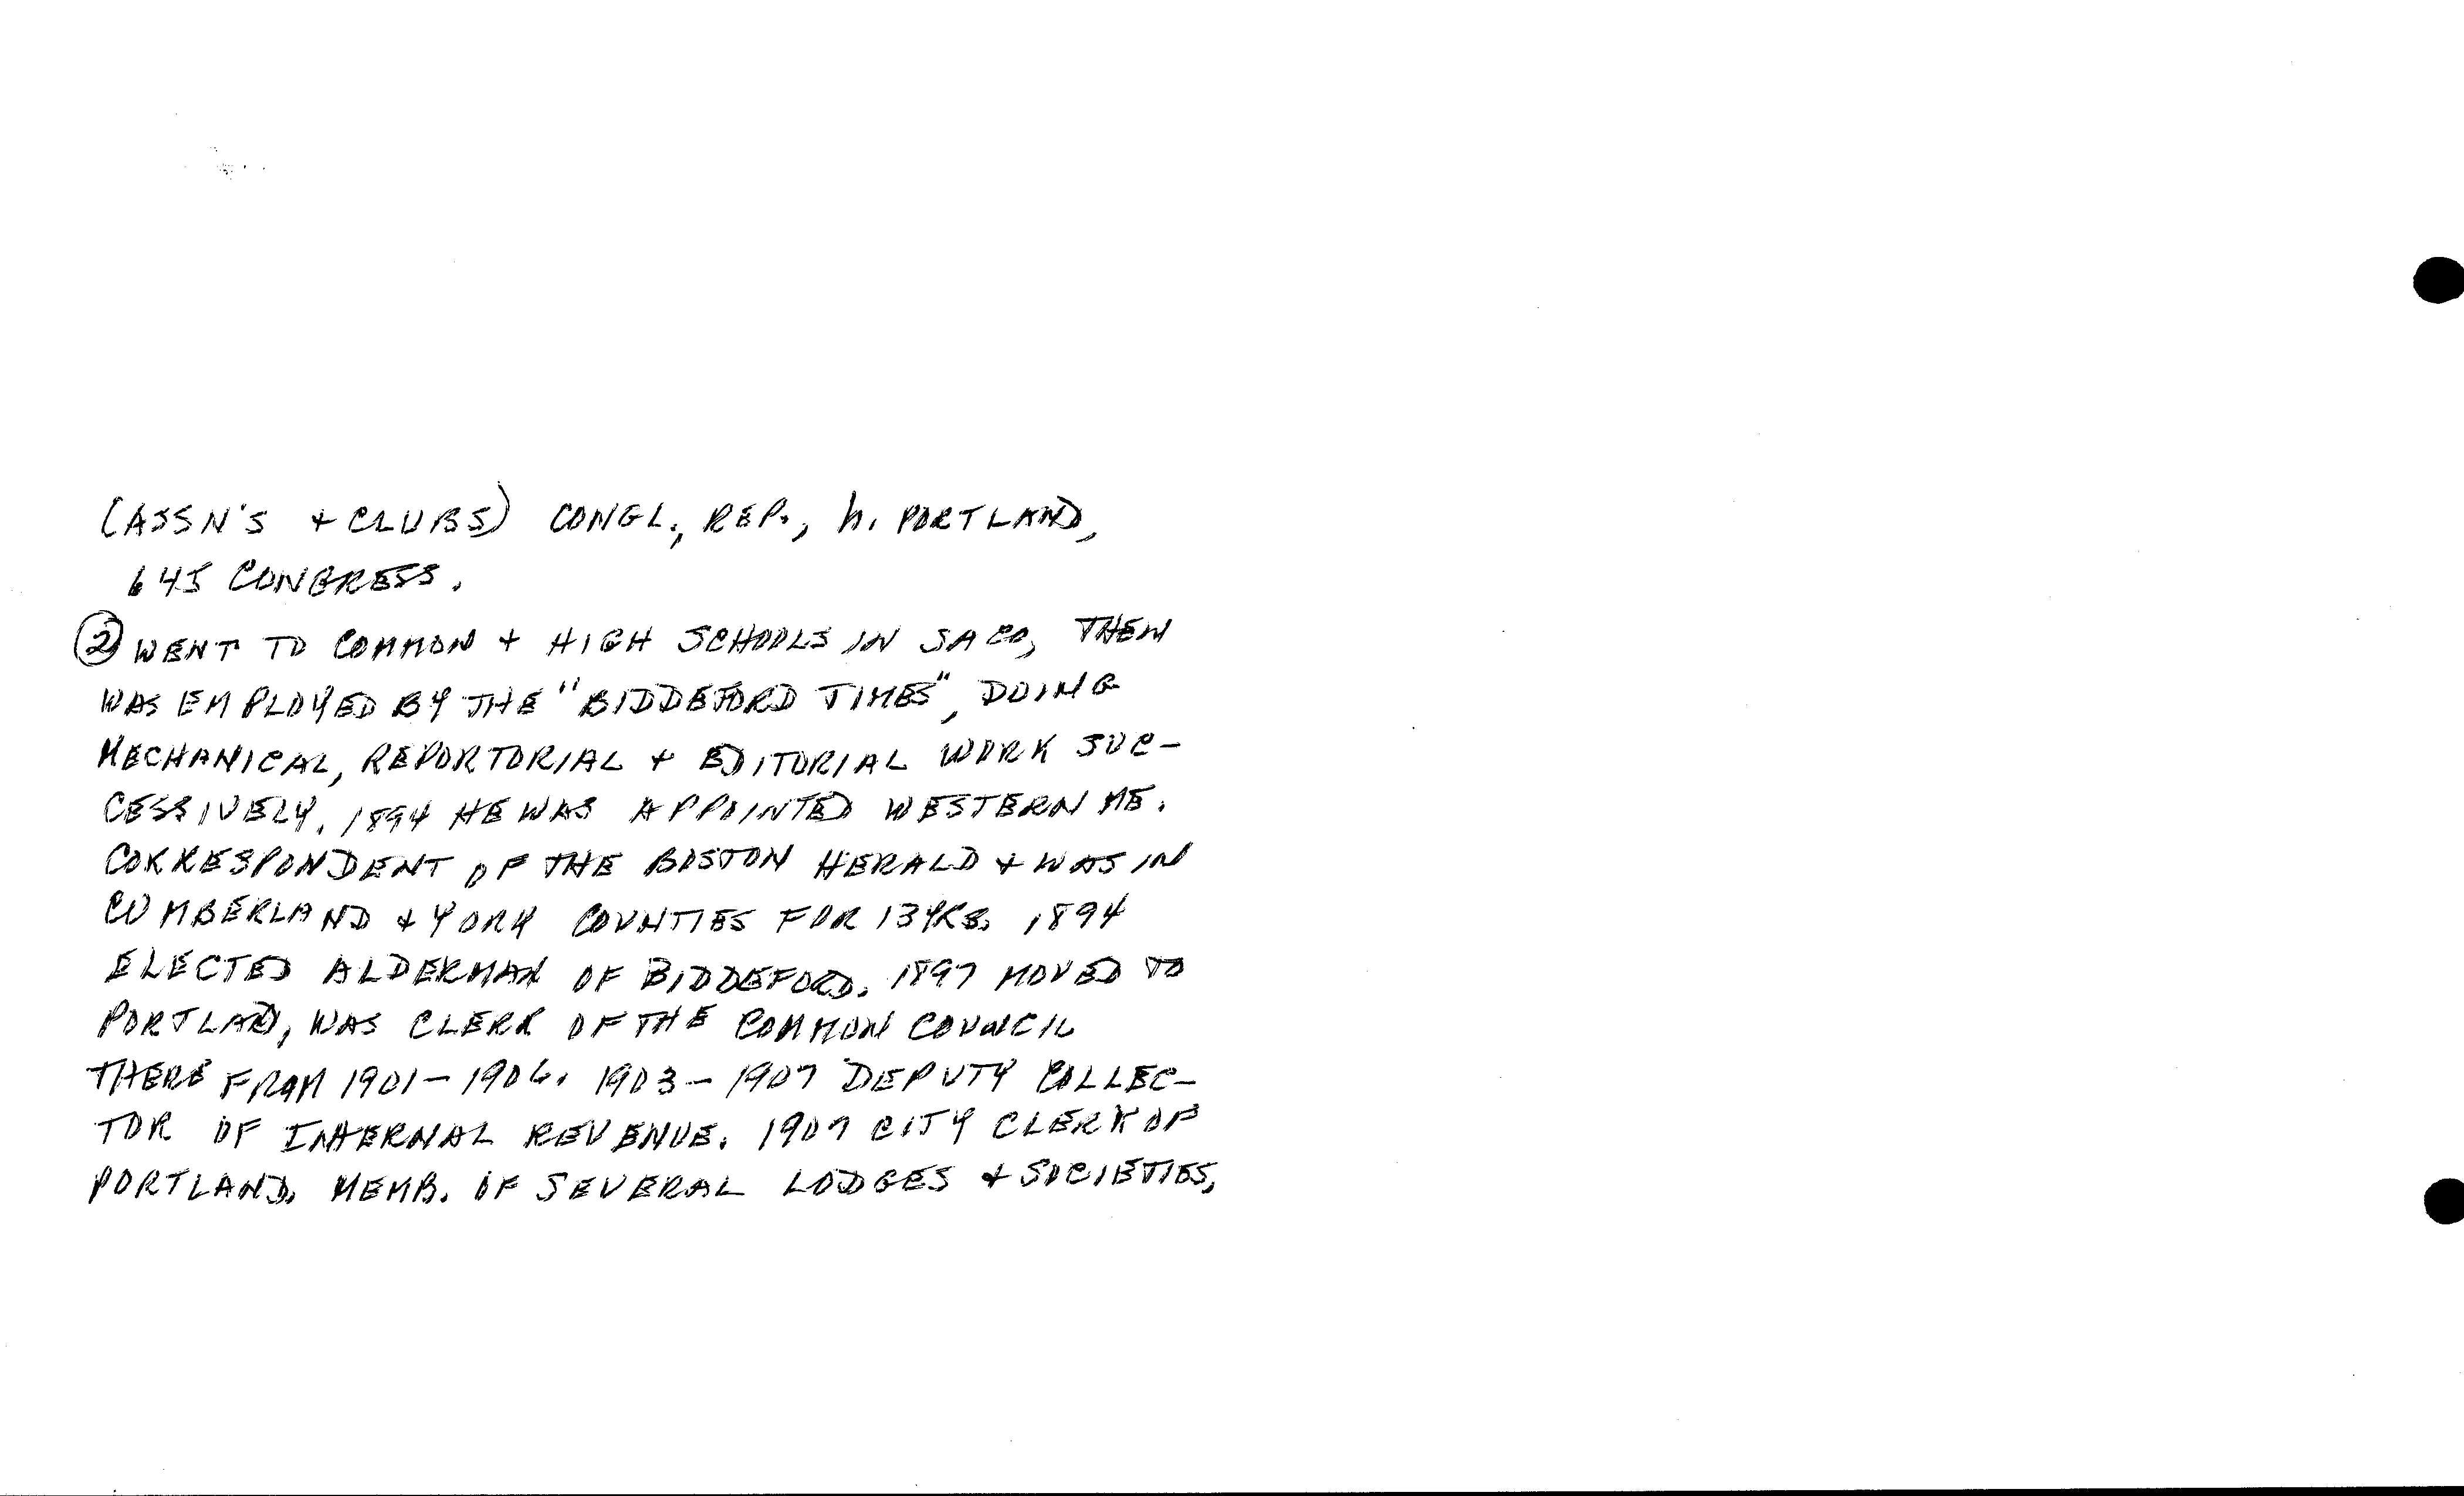 (ASSN'S + CLUBS) CONGL., REP., h. PORTLAND,
645 CONGRESS.
② WENT TO COMMON + HIGH SCHOOLS IN SACO, THEN
WAS EMPLOYED BY THE "BIDDEFORD TIMES", DOING
MECHANICAL, REPORTORIAL + EDITORIAL WORK SUC-
CESSIVELY. 1894 HE WAS APPOINTED WESTERN ME.
CORRESPONDENT OF THE BOSTON HERALD + WAS IN
CUMBERLAND + YORK COUNTIES FOR 13 YRS. 1894
ELECTED ALDERMAN OF BIDDEFORD. 1897 MOVED TO
PORTLAND, WAS CLERK OF THE COMMON COUNCIL
THERE FROM 1901-1906. 1903-1907 DEPUTY COLLEC-
TOR OF INTERNAL REVENUE. 1907 CITY CLERK OF
PORTLAND. MEMB. OF SEVERAL LODGES + SOCIETIES,